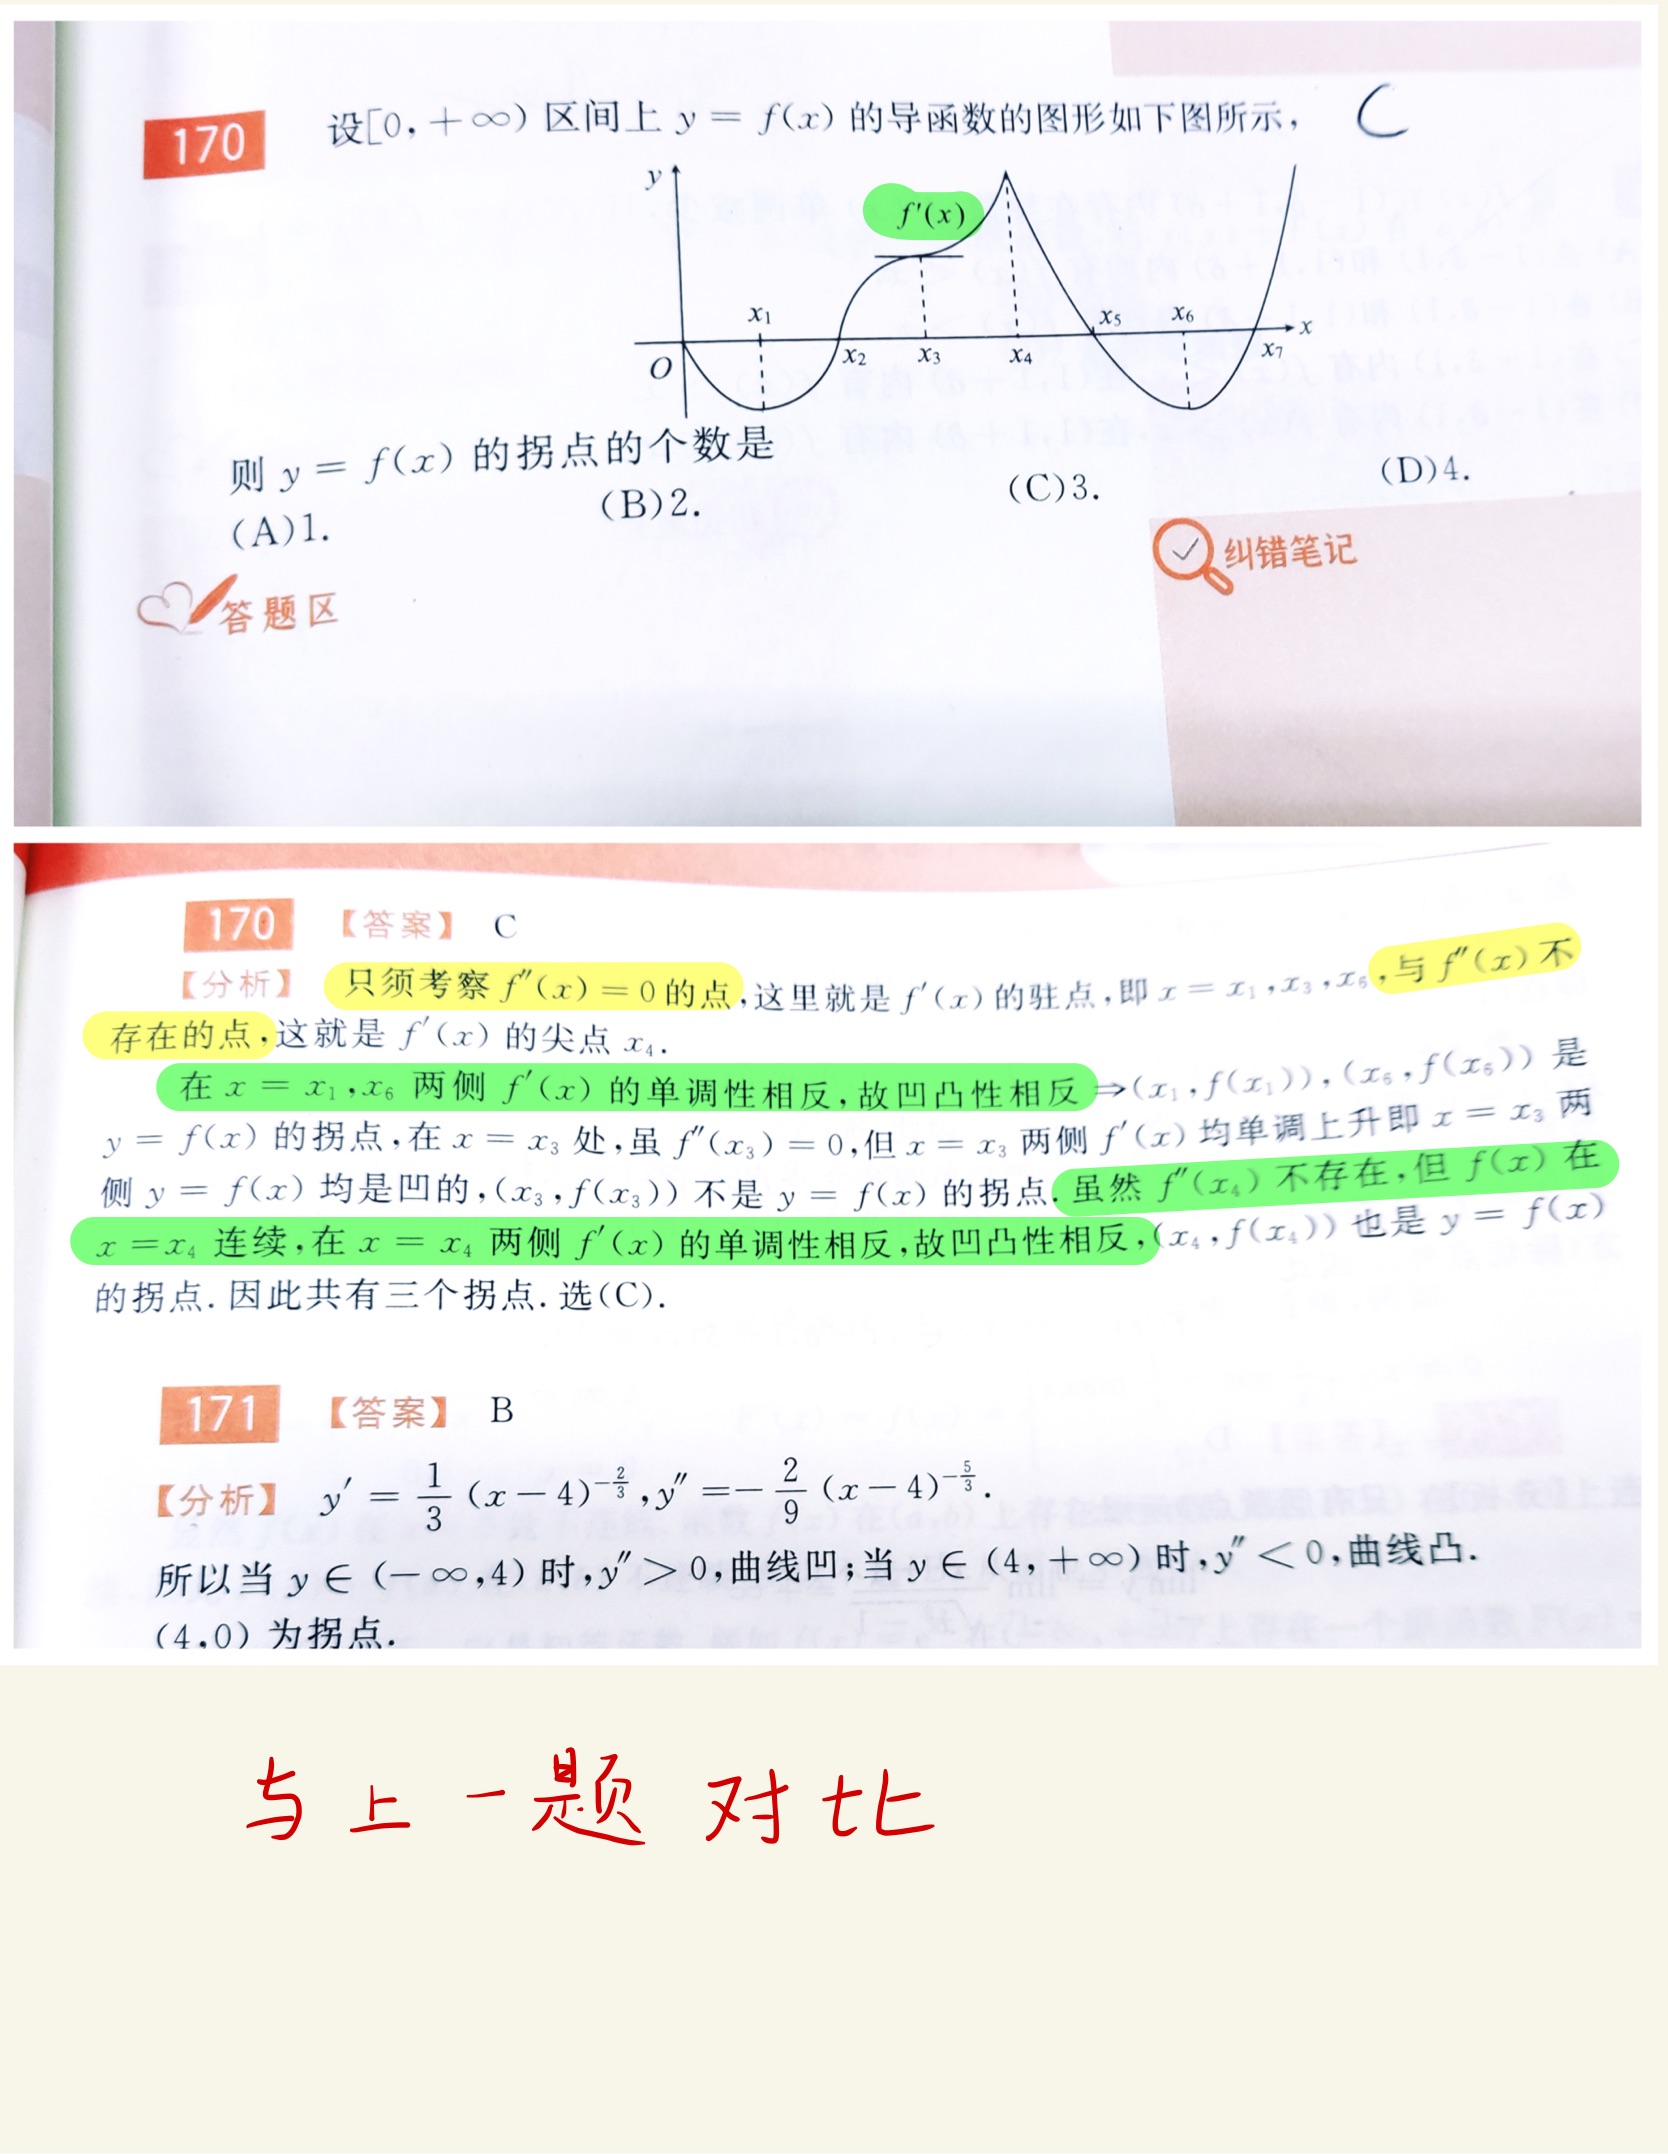 170 设[0,+∞)区间上 y = f(x) 的导函数的图形如下图所示, C
y
f′(x)
x₁ x₅ x₆ x
O x₂ x₃ x₄ x₇
则 y = f(x) 的拐点的个数是
(A)1. (B)2. (C)3. (D)4.
纠错笔记
答题区
170 【答案】 C
【分析】 只须考察 f″(x) = 0 的点,这里就是 f′(x) 的驻点,即 x = x₁,x₃,x₆,与 f″(x) 不
存在的点,这就是 f′(x) 的尖点 x₄.
在 x = x₁,x₆ 两侧 f′(x) 的单调性相反,故凹凸性相反⇒(x₁,f(x₁)),(x₆,f(x₆)) 是
y = f(x) 的拐点,在 x = x₃ 处,虽 f″(x₃) = 0,但 x = x₃ 两侧 f′(x) 均单调上升即 x = x₃ 两
侧 y = f(x) 均是凹的,(x₃,f(x₃)) 不是 y = f(x) 的拐点.虽然 f″(x₄) 不存在,但 f(x) 在
x = x₄ 连续,在 x = x₄ 两侧 f′(x) 的单调性相反,故凹凸性相反,(x₄,f(x₄)) 也是 y = f(x)
的拐点.因此共有三个拐点.选(C).
171 【答案】 B
【分析】 y′ = 1/3 (x-4)^(-2/3), y″ = - 2/9 (x-4)^(-5/3).
所以当 y∈(-∞,4) 时,y″>0,曲线凹;当 y∈(4,+∞) 时,y″<0,曲线凸.
(4,0) 为拐点.
与上一题 对比